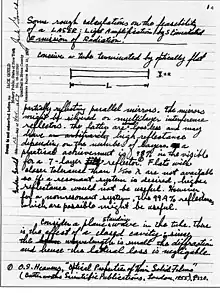 Some rough calculations on the feasibility
of a LASER: Light Amplification by Stimulated
Emission of Radiation.
conceive a tube terminated by optically flat
L
partially reflecting parallel mirrors. The mirrors
might be silvered or multilayer interference
reflectors. The latter are lossless and may
have high reflectance
depending on the number of layers. A
practical achievement is 98% in the visible
for a 7-layer reflector. Flats with
closer tolerance than are not available
if a resonant system is desired, higher
reflectance would not be useful. However
for a nonresonant system, the 99.9% reflectances
which are possible might be useful.
Consider a plane standing wave in the tube. There
is the effect of a closed cavity; since
the wavelength is small the diffraction
and hence the lateral loss is negligible.
O.S. Heavens, "Optical Properties of Thin Solid Films"
(Butterworths Scientific Publications, London, 1955)